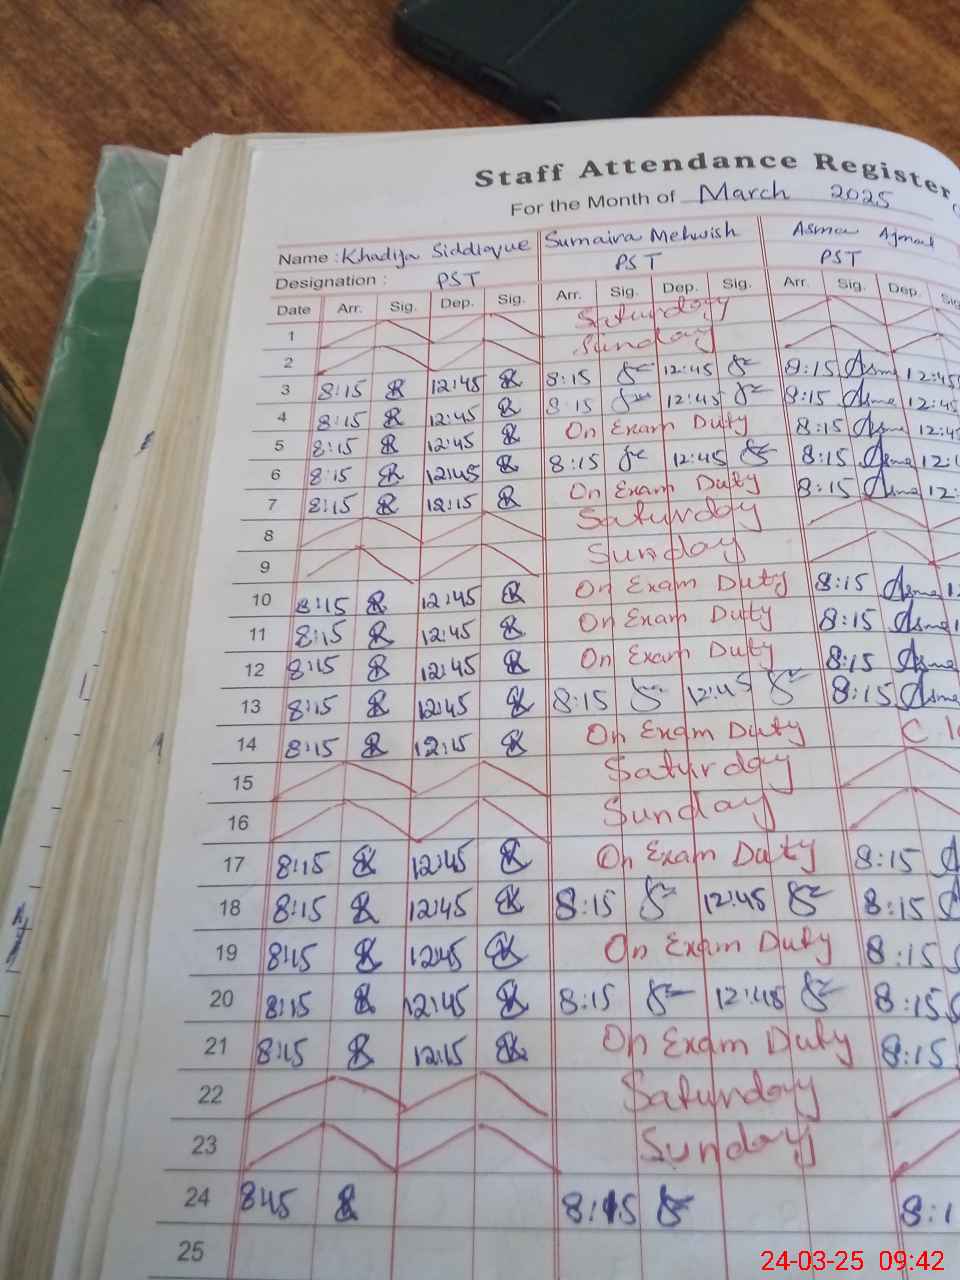 Staff Attendance Register
For the Month of March 2025
Name : Khadija Siddique Sumaira Mehwish Asma Ajmal
Designation : PST PST PST
Date Arr. Sig. Dep. Sig. Arr. Sig. Dep. Sig. Arr. Sig. Dep. Sig
1 Saturday
2 Sunday
3 8:15 12:45 8:15 12:45 8:15 Asma 12:45
4 8:15 12:45 8:15 12:45 8:15 Asma 12:45
5 8:15 12:45 On Exam Duty 8:15 Asma 12:4
6 8:15 12:45 8:15 12:45 8:15 Asma 12:
7 8:15 12:15 On Exam Duty 8:15 Asma 12:
8 Saturday
9 Sunday
10 8:15 12:45 On Exam Duty 8:15 Asma 12
11 8:15 12:45 On Exam Duty 8:15 Asma 1
12 8:15 12:45 On Exam Duty 8:15 Asma
13 8:15 12:45 8:15 12:45 8:15 Asma
14 8:15 12:15 On Exam Duty C.
15 Saturday
16 Sunday
17 8:15 12:45 On Exam Duty 8:15
18 8:15 12:45 8:15 12:45 8:15
19 8:15 12:45 On Exam Duty 8:15
20 8:15 12:45 8:15 12:45 8:15
21 8:15 12:15 On Exam Duty 8:15
22 Saturday
23 Sunday
24 845 8:15 8:1
25
24-03-25 09:42